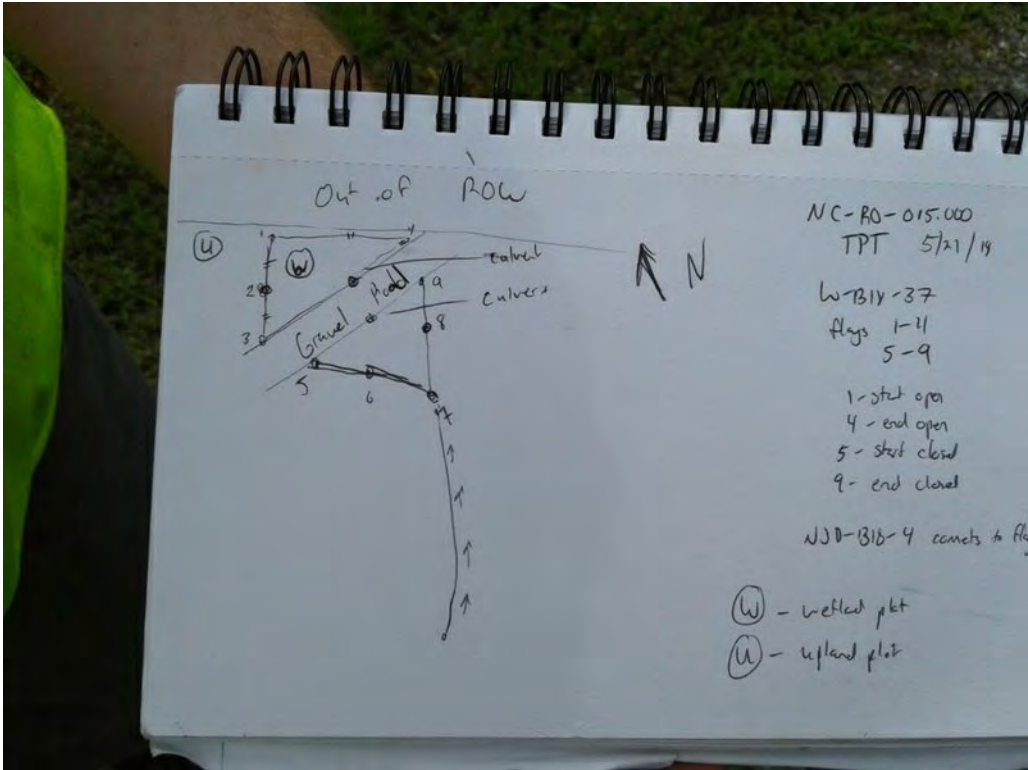 Out of ROW
U
W
1
4
2
3
Gravel Road
culvert
culvert
9
8
5
6
7
N
NC-RO-015.000
TPT 5/21/14
W-B14-37
flags 1-4
5-9
1-start open
4 - end open
5 - start closed
9 - end closed
to
W - wetland plot
U - upland plot